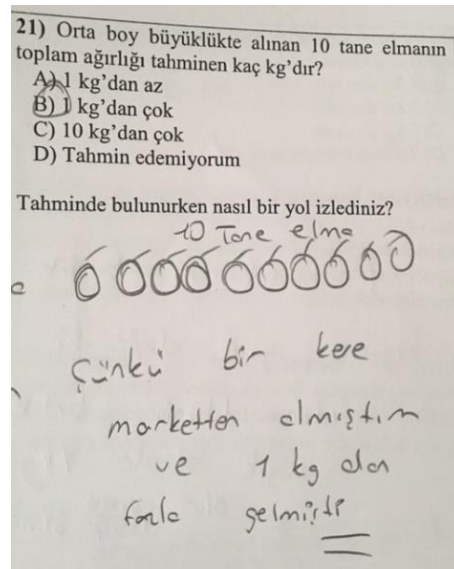 21) Orta boy büyüklükte alınan 10 tane elmanın
toplam ağırlığı tahminen kaç kg'dır?
A) 1 kg'dan az
B) 1 kg'dan çok
C) 10 kg'dan çok
D) Tahmin edemiyorum
Tahminde bulunurken nasıl bir yol izlediniz?
10 Tane elma
Çünkü bir kere
marketten almıştım
ve 1 kg dan
fazla gelmişti